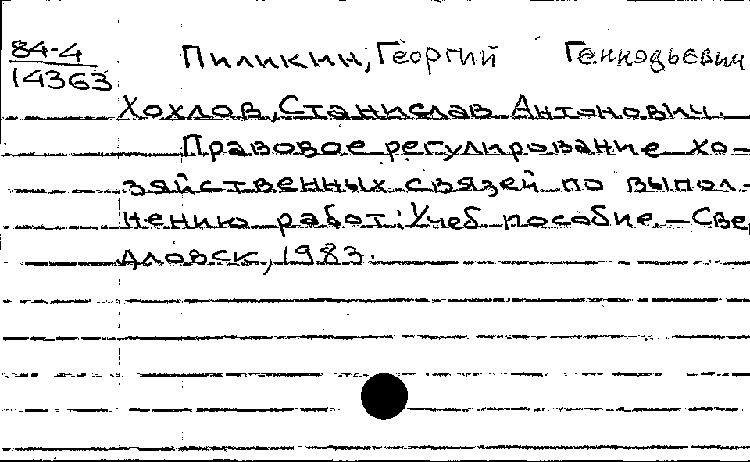 84-4
14363
Пиликин, Георгий Геннадьевич
Хохлов, Станислав Антонович.
Правовое регулирование хо-
зяйственных связей по выпол-
нению работ: Учеб пособие. — Свер
дловск, 1983.